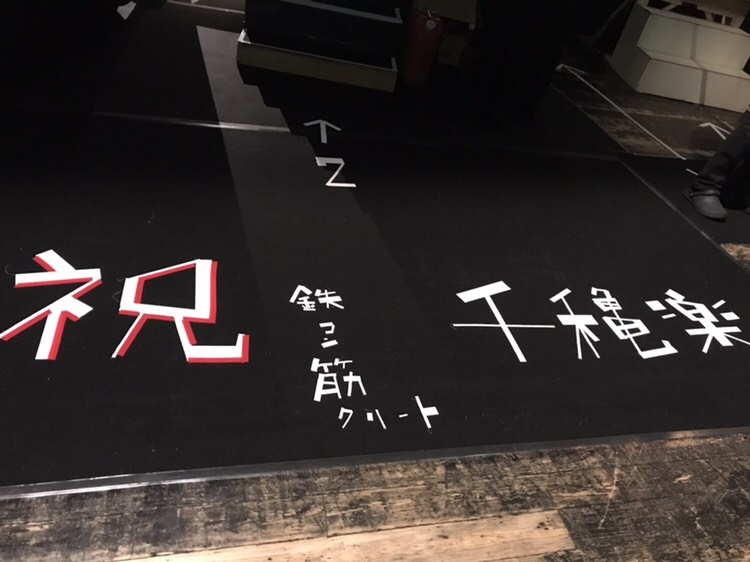 祝
鉄
コン
筋
クリート
千穐楽